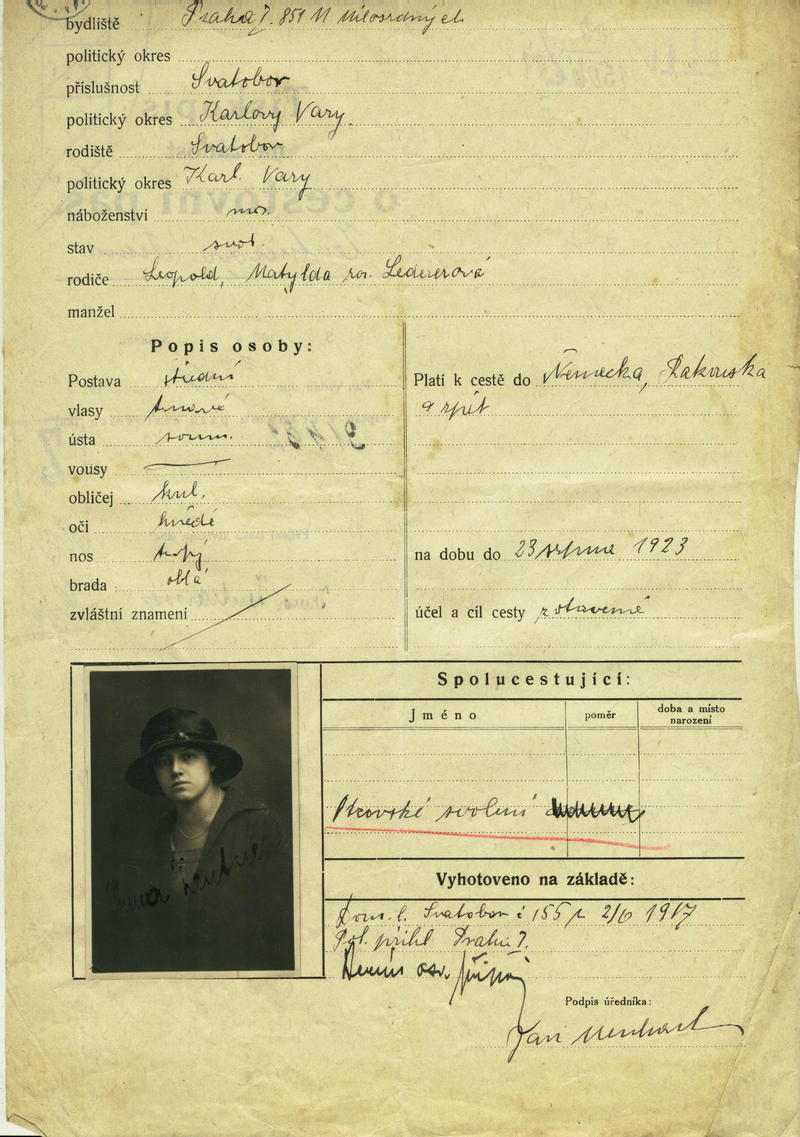 bydliště Praha I. 851 U Milosrdných
politický okres
příslušnost Svatobor
politický okres Karlovy Vary.
rodiště Svatobor
politický okres Karl. Vary
náboženství mos.
stav svob.
rodiče Leopold, Matylda roz. Ledererová
manžel
Popis osoby:
Postava střední
vlasy tmavé
ústa soum.
vousy
obličej kul.
oči hnědé
nos tupý
brada oblá
zvláštní znamení
Platí k cestě do Německa, Rakouska
a zpět
na dobu do 23 srpna 1923
účel a cíl cesty zotavené
Spolucestující:
Jméno
poměr
doba a místo
narození
Otcovské svolení
Irma
Vyhotoveno na základě:
Dom. l. Svatobor č 155 z 2/6 1917
Pol. přihl Praha I.
osv.
Podpis úředníka:
Jan